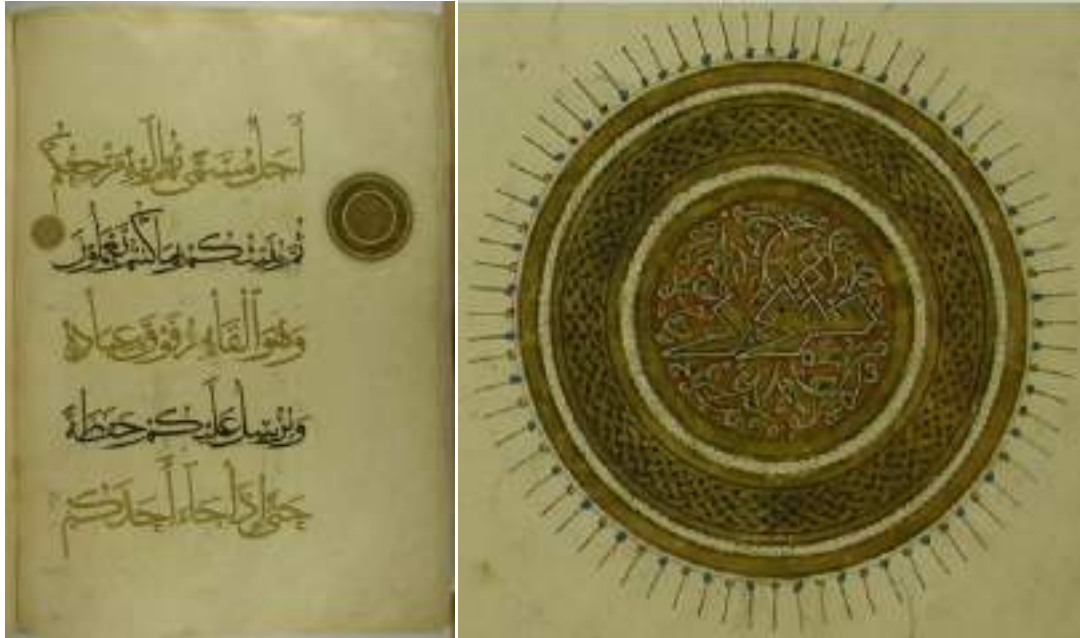 أَجَلٌ مُسَمًّى ثُمَّ إِلَيْهِ مَرْجِعُكُمْ
ثُمَّ يُنَبِّئُكُمْ بِمَا كُنْتُمْ تَعْمَلُونَ
وَهُوَ الْقَاهِرُ فَوْقَ عِبَادِهِ
وَيُرْسِلُ عَلَيْكُمْ حَفَظَةً
حَتَّى إِذَا جَاءَ أَحَدَكُمْ